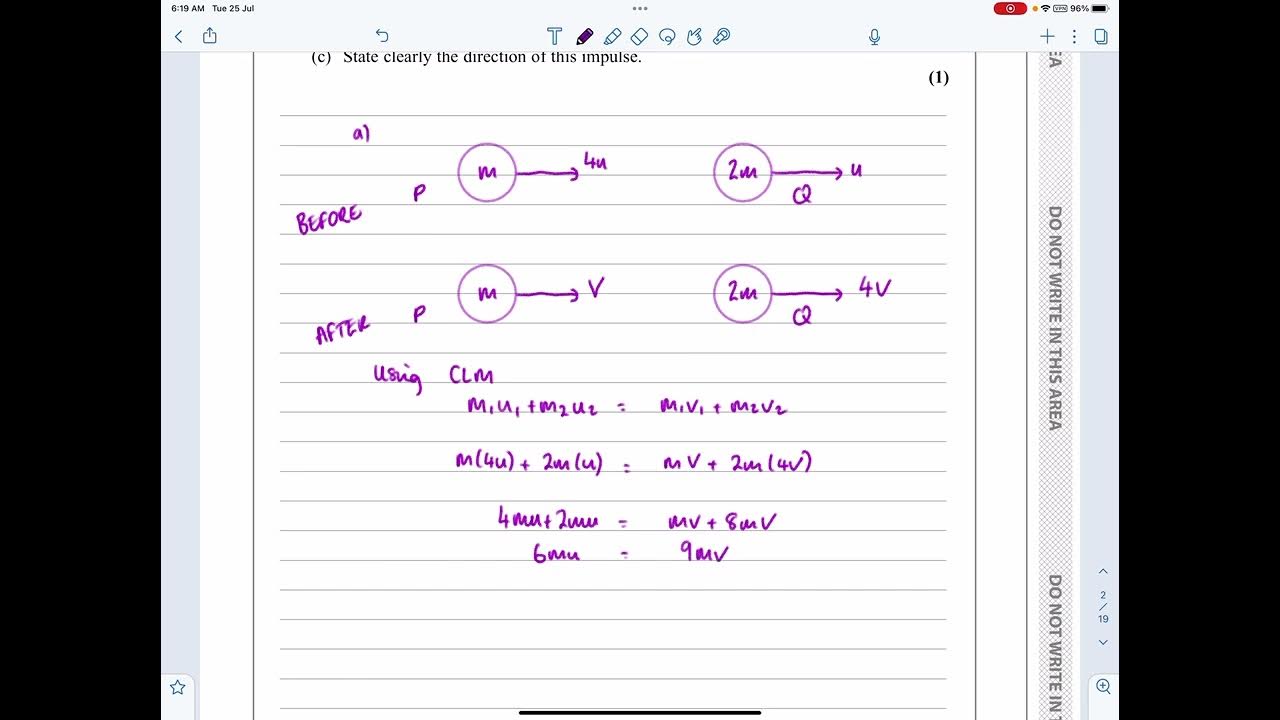 6:19 AM Tue 25 Jul
VPN 96%
T
(c) State clearly the direction of this impulse.
(1)
a)
m 4u 2m u
P Q
BEFORE
m V 2m 4V
P Q
AFTER
Using CLM
m₁u₁ + m₂u₂ = m₁v₁ + m₂v₂
m(4u) + 2m(u) = mV + 2m(4V)
4mu + 2mu = mV + 8mV
6mu = 9mV
EA
DO NOT WRITE IN THIS AREA
DO NOT WRITE IN T
2
/
19